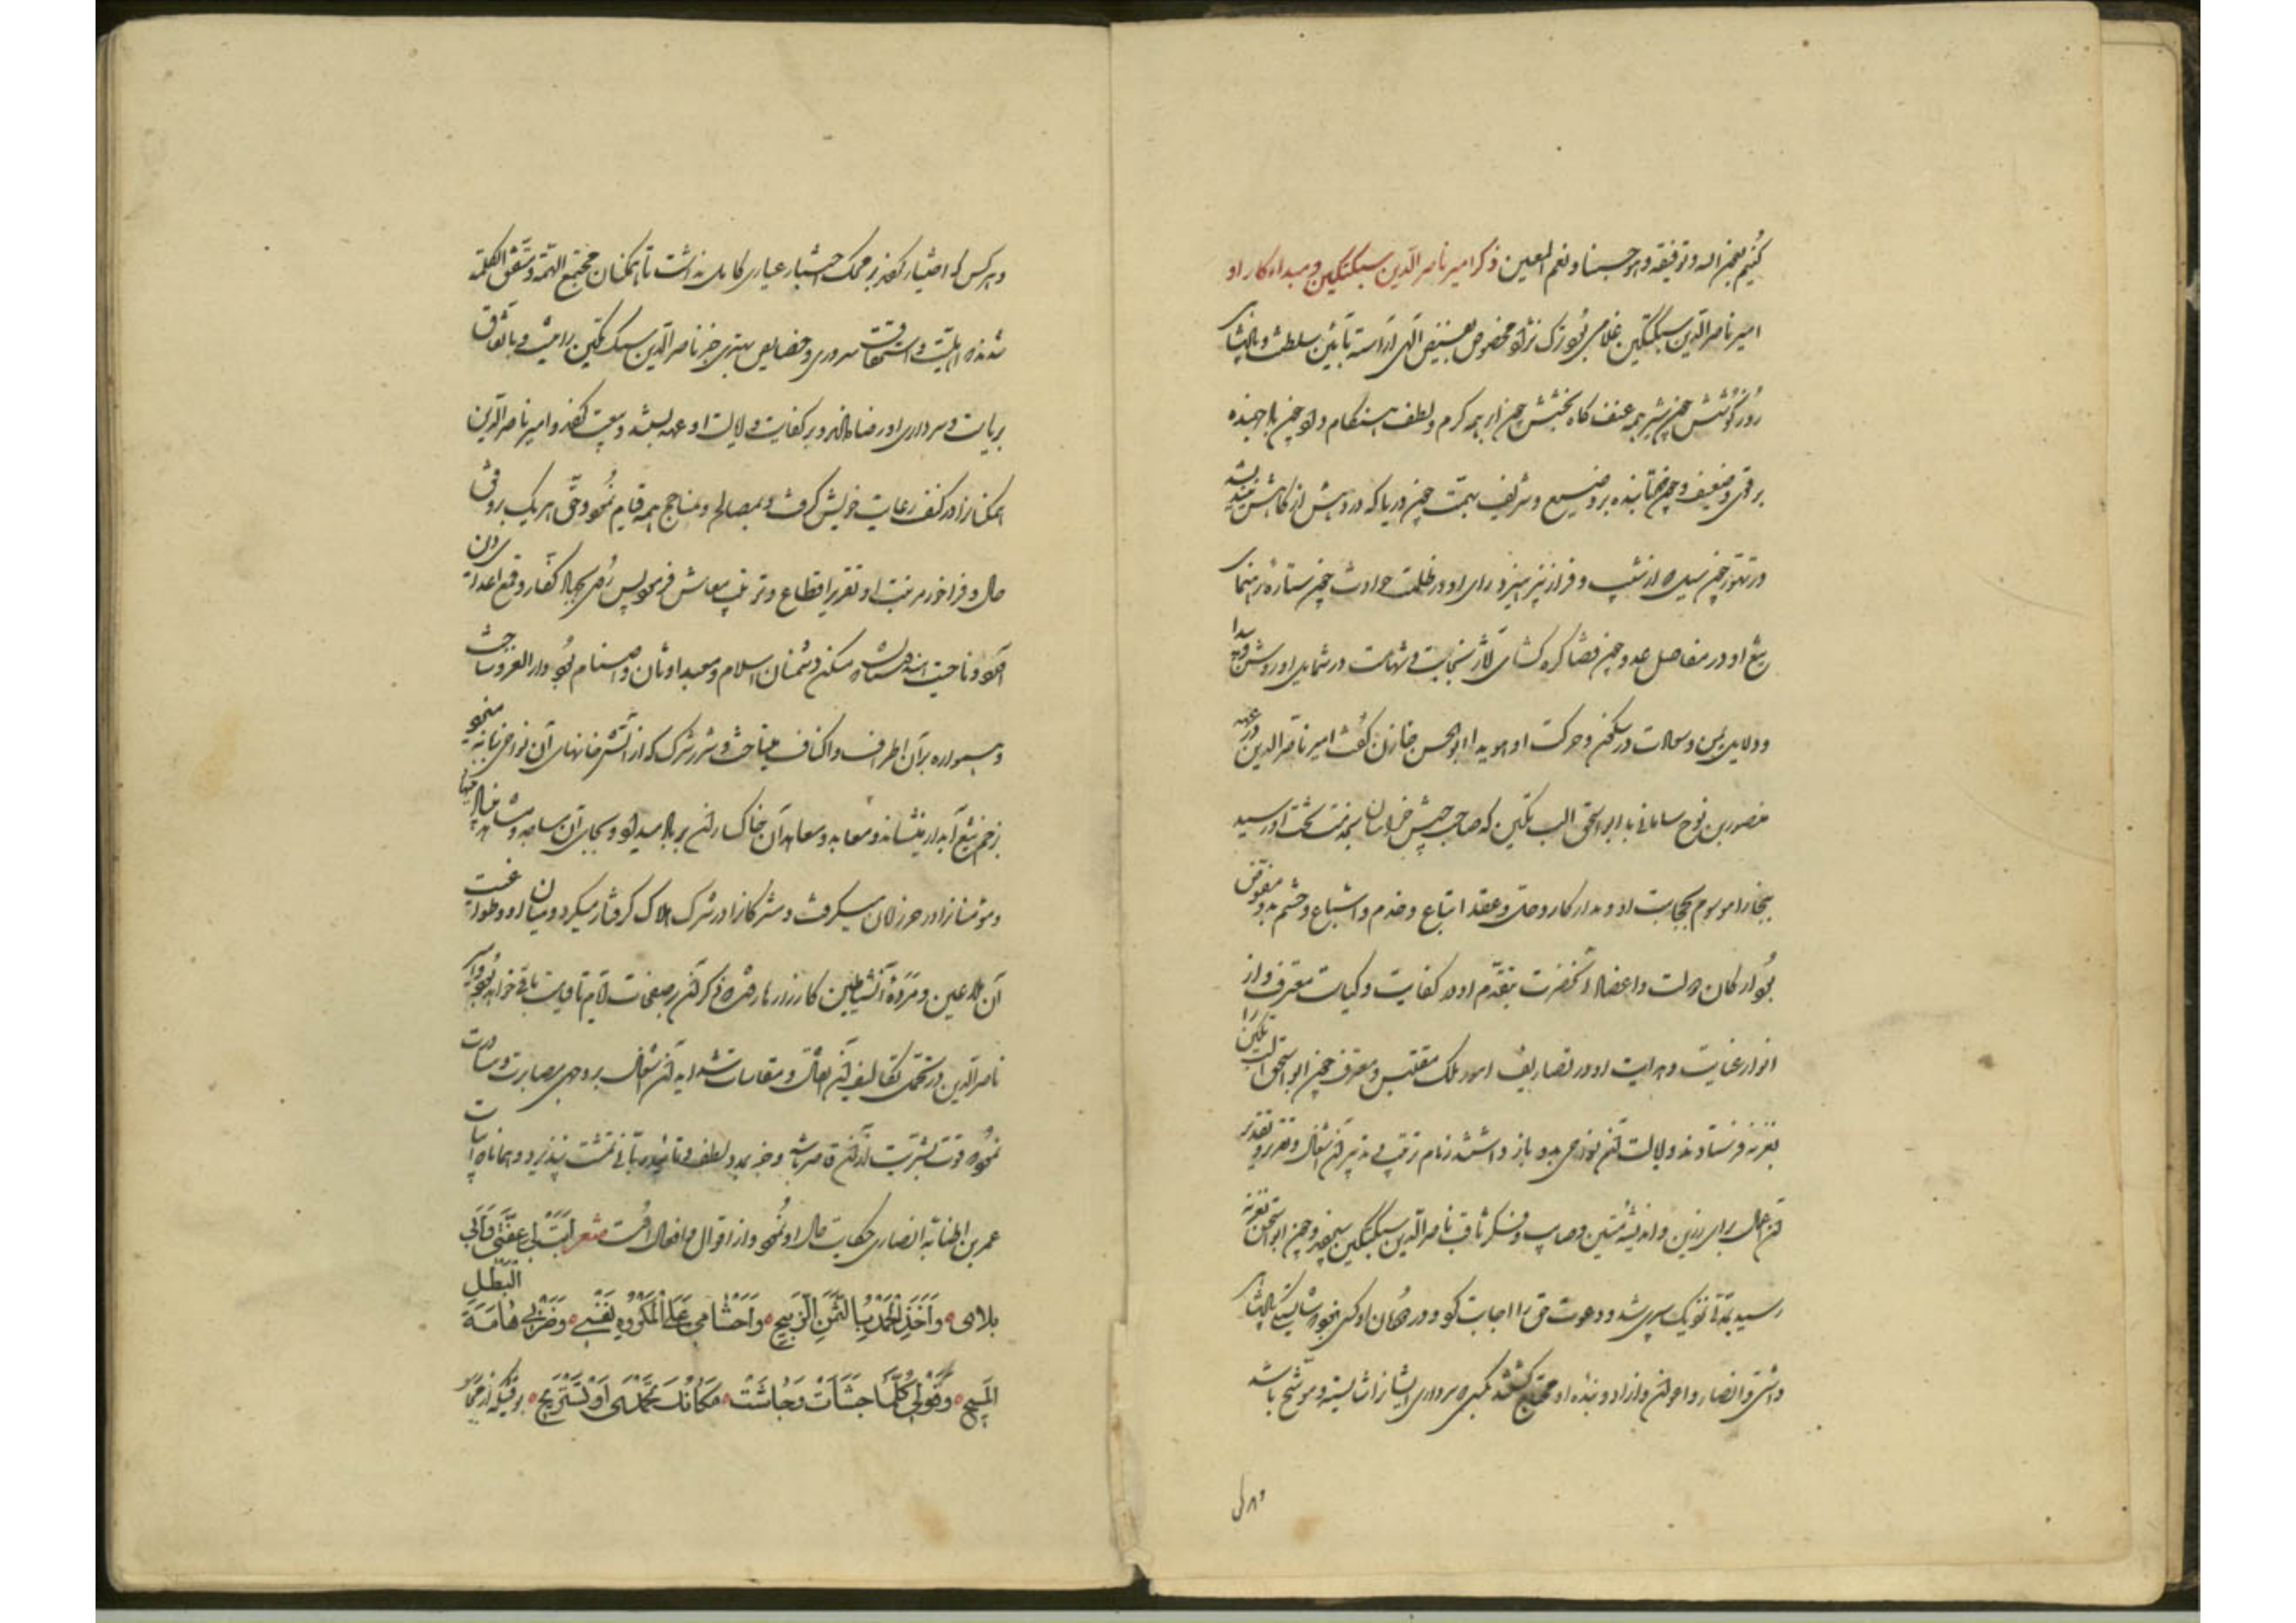 کنیم بعون الله وتوفیقه وهو حسبنا ونعم المعین ذکر امیر ناصرالدین سبکتکین و مبداء کار او
امیر ناصرالدین سبکتکین غلامی بود ترک نژاد مخصوص بفیض الهی آراسته بآئین سلطنت و پادشاهی
روز کوشش چون شیر همه عنف کاه بخشش چون ابر همه کرم و لطف هنگام داد چون باد جهنده
بر قوی و ضعیف و چون آفتاب تابنده بر وضیع و شریف بهمت چون دریا که در دهش از کاهش نیندیشد
در تهور چون سیل که از نشیب و فراز نپرهیزد رای او در ظلمت حوادث چون ستاره رهنمای
تیغ او در مفاصل عدو چون قضا کره کشای آثار نجابت و شهامت در شمایل او روشن و پیدا
و دلایل یمن و سعادت در سکون و حرکت او هویدا ابوالحسن خازن کفت امیر ناصرالدین در عهد
منصور بن نوح سامانی با ابواسحق الب تکین که صاحب جیش خراسان بود بخت او رسید
ببخارا موسوم بحجابت او و مدار کار و حل و عقد اتباع و خدم و اشیاع و حشم بدو مفوض
بود ارکان دولت و اعضاد آنحضرت بتقدم او در کفایت و کیاست معترف و از
انوار عنایت و هدایت او در تصاریف امور ملک مقتبس و مغترف چون ابواسحق الب تکین را
بغزنه فرستادند و ولایت آن نواحی بدو باز داشتند زمام ترتیب و تدبیر آن اشغال و تقریر و تقدیر
آن اعمال برای رزین و اندیشه متین و صایب و فکر ثاقب ناصرالدین سبکتکین سپرد و چون ابواسحق بغزنه
رسید مدتی نزدیک سپری شد و دعوت حق را اجابت کرد و در دودمان او کسی نبود که شایستکی پادشاهی
داشتی و انصار و اعوان و آزاد و بنده او محتاج کشتند بکسی که سرداری ایشان را شایسته و موشح باشد
وهر کس
وهر کس که اختیار کردند بر محک اختبار عیاری کامل نداشت تا همکنان مجتمع الهمه و متفق الکلمه
شدند که اهلیت و استحقاق سروری و خصایص مهتری جز ناصرالدین سبکتکین را نیست و باتفاق
بریاست و سرداری او رضا دادند و بر کفایت و ولایت او عهد بستند و بیعت کردند و امیر ناصرالدین
همکنان را در کنف رعایت خویش کرفت و بمصالح و مناجح همه قیام نمود و حق هر یک بر وفق
حال و فراخور مرتبت او تقریر اقطاع و ترتیب معاش فرمود پس روی بجهاد کفار و قمع اعداء دین
آورد و ناحیت هندوستان که مسکن دشمنان اسلام و معبد اوثان و اصنام بود دار الغزو ساخت
و همواره بر آن اطراف و اکناف میتاخت و شرر شرک که از آتش خانهای آن نواحی زبانه میزد
بزخم تیغ آبدار مینشاند و معابد و معاهد آن خاکساران بر باد میداد و بجای آن مساجد و مشاهد
و مؤمنان را در حرز امان میکرفت و مشرکان را در شرک هلاک کرفتار میکرد و میان او و طواغیت
آن ملاعین و مردة الشیاطین کارزارها رفت که ذکر آن بر صفحات ایام تا قیامت باقی خواهد بود و امیر
ناصرالدین در تحمل تکالیف آن اعمال و مقاسات شداید آن اشغال بر وجهی مصابرت و مثابرت
نمود که قوت بشریت از آن قاصر باشد و جز بمدد لطف و تائید ربانی تمشیت نپذیرد و همانا که ابیات
عمر بن اطنابه انصاری حکایت حال او نمود و از اقوال و افعال او شعر اَبَتْ لی عِفَّتی وَاَبی
بَلائی وَاَخْذِی الْحَمْدَ بِالثَّمَنِ الرَّبیحِ وَاِحْشامی عَلَی الْمَکْرُوهِ نَفْسی وَضَرْبی هامَةَ البَطَلِ
المُشیحِ وَقَوْلی کُلَّما جَشَأَتْ وَجاشَتْ مَکانَکِ تُحْمَدی اَوْ تَسْتَریحی